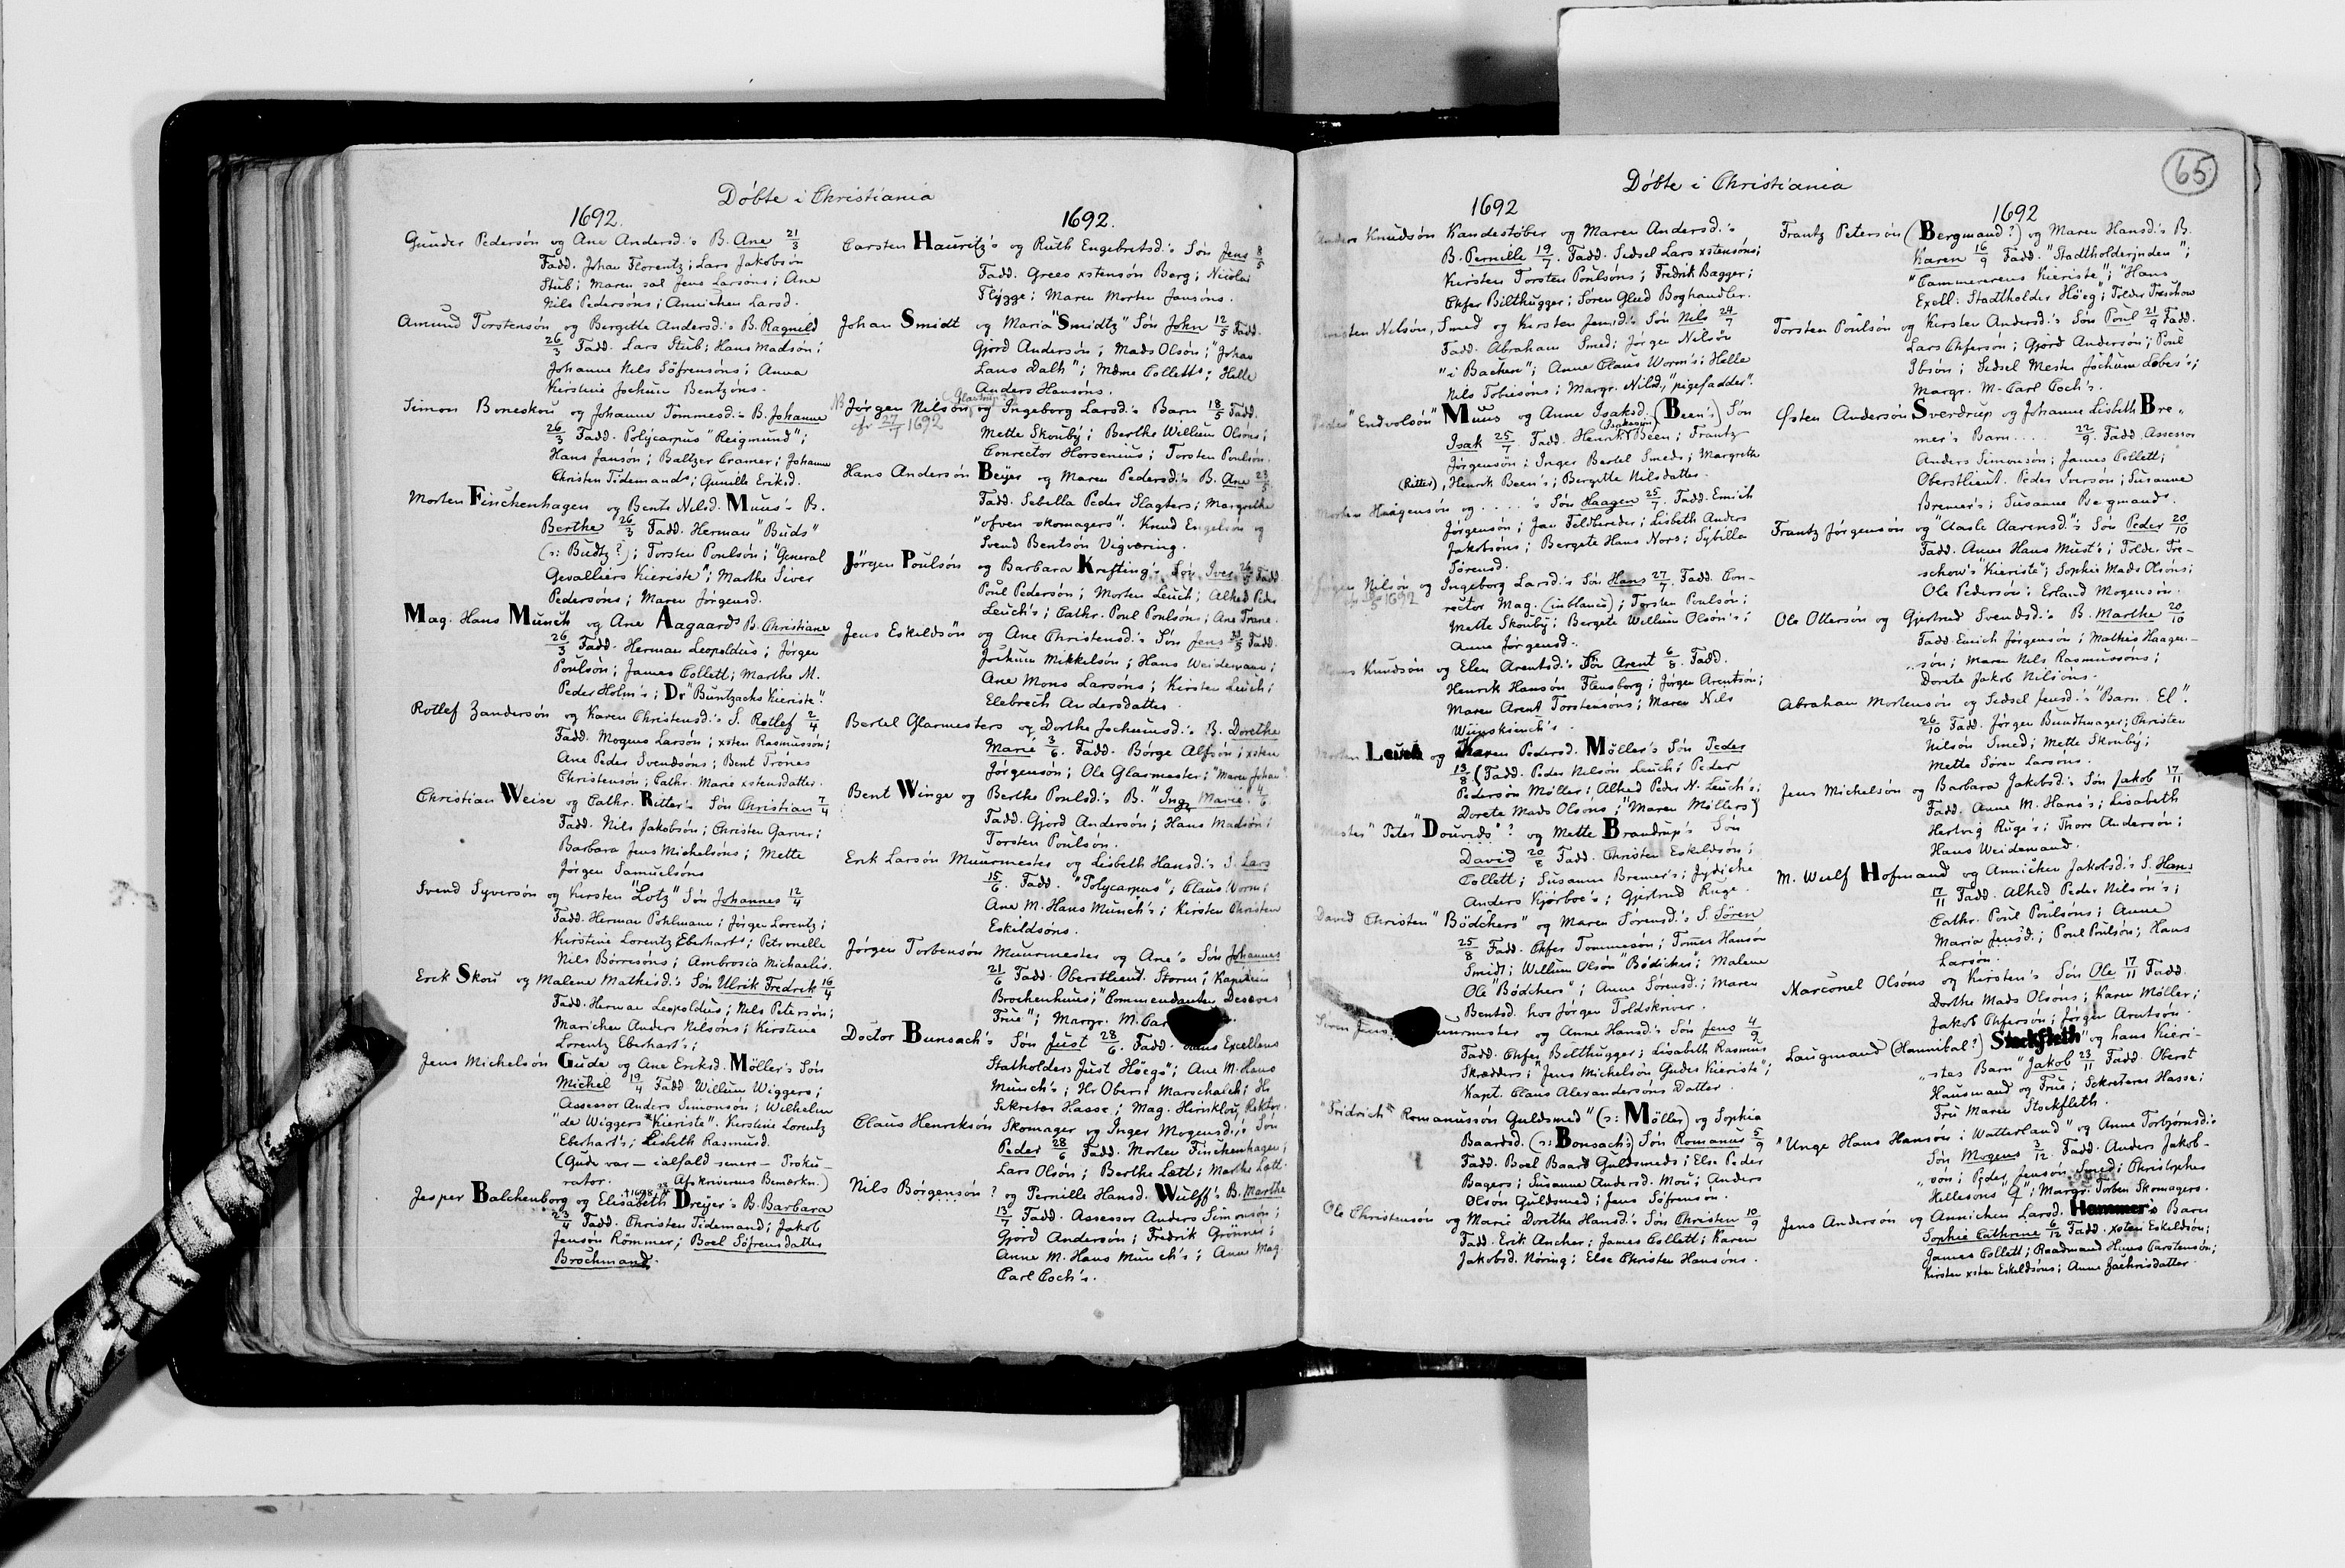 Döbte i Christiania
1692.
Gunder Pedersön og Ane Andersd.'s B. Ane 21/3
Fadd. Johan Florentz; Lars Jakobsön
Stub; Maren sal Jens Larsöns; Ane
Nils Pedersöns; Annichen Larsd.
Amund Torstensön og Bergitte Andersd.'s B. Ragnild
26/3 Fadd. Lars Stub; Hans Madsön;
Johanne Nils Söfrensöns; Anna
Kirstine Jochum Bentzöns.
Simon Boneskou og Johanne Tommesd.'s B. Johanne
26/3 Fadd. Polycarpus "Reigmund";
Hans Jansön; Baltzer Cramer; Johanne
Christen Tidemands; Gunille Eriksd.
Morten Finchenhagen og Bente Nilsd. Muus's B.
Berthe 26/3 Fadd. Herman "Buds"
(ɔ: Budtz?); Torsten Poulsön; "General
Gevalliers Kieriste"; Marthe Siver
Pedersöns; Maren Jörgensd.
Mag. Hans Munch og Ane Aagaards B. Christiane
26/3 Fadd. Herman Leopoldus; Jörgen
Poulsön; James Collett; Marthe M.
Peder Holm's; Dr "Buntzachs Kieriste".
Rotlef Zandersön og Karen Christensd.'s S. Rotlef 2/4
Fadd. Mogens Larsön; xsten Rasmussön;
Ane Peder Svendsöns; Bent Trones
Christensön; Cathr. Marie xstensdatter.
Christian Weise og Cathr. Ritter's Sön Christian 7/4
Fadd. Nils Jakobsön; Christen Garver;
Barbara Jens Michelsöns; Mette
Jörgen Samuelsöns
Svend Syversön og Kirsten "Lotz" Sön Johannes 12/4
Fadd. Herman Pohlmann; Jörgen Lorentz;
Kirstine Lorentz Eberharts; Petronelle
Nils Börresöns; Ambrosia Michaelis.
Erik Skou og Malene Mathisd.'s Sön Ulrik Fredrik 16/4
Fadd. Herman Leopoldus; Nils Petersön;
Marichen Anders Nilsöns; Kirstine
Lorentz Eberhart's;
Jens Michelsön Gude og Ane Eriksd. Möller's Sön
Michel 19/4 Fadd. Willum Wiggers;
Assessor Anders Simonsön; Wilhelm
"de Wiggers Kieriste". Kirstine Lorentz
Eberhart's; Lisbeth Rasmusd.
(Gude var — ialfald senere — Proku-
rator. Afskriverens Bemærkn.)
Jesper Balchenborg og Elisabeth Dreyer's B. Barbara
23/4 Fadd. Christen Tidemand; Jakob
Jensön Römmer; Boel Söfrensdatter
Brochmand.
1692.
Carsten Hauritz's og Ruth Engebretsd.'s Sön Jens 8/5
Fadd. Grees xstensön Berg; Nicolai
Flygge; Maren Morten Jansöns.
Johan Smidt og Maria "Smidtz" Sön John 12/5 Fadd.
Gjord Andersön; Mads Olsön; "Johan
Lans Dalh"; Mdme Colletts; Helle
Anders Hansöns.
NB Jörgen Nilsön og Ingeborg Larsd.'s Barn 18/5 Fadd.
cfr 27/7 1692
Mette Skouby; Berthe Willum Olsöns;
Conrector Horsenius; Torsten Poulsön.
Hans Andersön Beyer og Maren Pedersd.'s B. Ane 23/5
Fadd. Sebella Peder Slagters; Margrethe
"ofven skomagers". Knud Engelsön og
Svend Bentsön Vigværing.
Jörgen Poulsön og Barbara Krefting's Sön Iver 26/5 Fadd
Poul Pedersön; Morten Leuch; Alhed Peder
Leuch's; Cathr. Poul Poulsöns; Ane Trane.
Jens Eskildsön og Ane Christensd.'s Sön Jens 31/5 Fadd.
Jochum Mikkelsön; Hans Weidemann;
Ane Mons Larsöns; Kirsten Leuch;
Elebrech Andersdatter.
Bertel Glarmesters og Dorthe Jochumsd.'s B. Dorethe
Marie 3/6. Fadd. Börge Alfsön; xsten
Jörgensön; Ole Glasmester; "Maren Johan".
Bent Winge og Berthe Poulsd.'s B. "Inge Marie" 4/6
Fadd. Gjord Andersön; Hans Madsön;
Torsten Poulsön.
Erik Larsön Muurmester og Lisbeth Hansd.'s S. Lars
15/6. Fadd. "Polycarpus"; Claus Worm;
Ane M. Hans Munch's; Kirsten Christen
Eskildsöns.
Jörgen Torbensön Muurmester og Ane's Sön Johannes
21/6 Fadd. Oberstlieut. Storm; Kapitein
Brochenhuus; "Commendanten Deseves
Frue"; Margr. M. Car
Doctor Bunsach's Sön Just 28/6. Fadd. Hans Excellens
Statholders Just Höegs"; Ane M. Hans
Munch's; Hr Oberst Marschalch; Hr
Sekretær Hasse; Mag. Hirnklou, Rektor.
Claus Henriksön Skomager og Inger Mogensd.'s Sön
Peder 28/6 Fadd. Morten Finchenhagen;
Lars Olsön; Berthe Lætt; Marthe Lætt.
Nils Börgensön? og Pernille Hansd. Wulff's B. Marthe
13/7 Fadd. Assessor Anders Simonsön;
Gjord Andersön; Fredrik Grönner;
Anne M. Hans Munch's; Anne Mag.
Carl Coch's.
65
Döbte i Christiania
1692
Anders Knudsön Kandestöber og Maren Andersd.'s
B. Pernille 19/7. Fadd. Sidsel Lars xstensöns;
Kirsten Torsten Poulsöns; Fredrik Bagger;
Chfer Bilthugger; Sören Glud Boghandler.
Nilsön, Smed og Kirsten Jensd.'s Sön Nils 24/7
Fadd. Abraham Smed; Jörgen Nilsön
"i Bachen"; Anne Claus Worm's; Helle
Nils Tobiesöns; Margr. Nilsd., "pigefadder".
Peder "Endvolsön" Muus og Anne Isaksd. (Been's) Sön
Isak 25/7 Fadd. Henrik (Isaksön) Been; Frantz
Jörgensön; Inger Bertel Smeds; Margrethe
(Ritter), Henrik Been's; Bergitte Nilsdatter.
Morten Haagensön og ....'s Sön Haagen 25/7. Fadd. Emich
Jörgensön; Jan Feldbereder; Lisbeth Anders
Jakobsöns; Bergete Hans Nors; Sybilla
Sörensd.
Jörgen Nilsön og Ingeborg Larsd.'s Sön Hans 27/7. Fadd. Con-
5 1692
rector Mag. (in blanco); Torsten Poulsön;
Mette Skouby; Bergete Willum Olsön's;
Anne Jörgensd.
Knudsön og Elen Arentsd.'s Sön Arent 6/8. Fadd.
Henrik Hansön Flensborg; Jörgen Arentsön;
Maren Arent Torstensöns; Maren Nils
Morten Leuch og Karen Pedersd. Möller's Sön Peder
13/8 (Fadd. Peder Nilsön Leuch; Peder
Pedersön Möller; Alhed Peder N. Leuch's;
Dorete Mads Olsöns; "Maren Möllers")
"Mester" Peter "Douvids"? og Mette Brandrup's Sön
David 20/8 Fadd. Christen Eskildsön;
Collett; Susanne Bremer's; Jydiche
Anders Kjörboe's; Gjertrud Ruge.
David Christen "Bödchers" og Maren Sörensd.'s S. Sören
25/8 Fadd. Chfer Tommesön; Tomes Hansön
Smidt; Willum Olsön "Bödicher"; Malene
Ole "Bödchers"; Anne Sörensd.; Maren
Bentsd. hos Jörgen Toldskriver.
Siven Jens urmester og Anne Hansd.'s Sön Jens 4/9
Fadd. Chfer Bilthugger; Lisabeth Rasmus
Skrædders; "Jens Michelsön Gudes Kieriste";
Kapt. Claus Alexandersöns Datter.
"Fridrich Romanussön Guldsmed" (ɔ: Möller) og Sophia
Baardsd. (ɔ: Bonsach's) Sön Romanus 5/9
Fadd. Boel Baard Guldsmeds; Else Peder
Bagers; Susanne Andersd. Mou; Anders
Olsön Guldsmed; Jens Söfrensön.
Ole Christensön og Marie Dorethe Hansd.'s Sön Christen 10/9
Fadd. Erik Ancher; James Collett; Karen
Jakobsd. Nöring; Else Christen Hansöns.
1692
Frantz Petersön (Bergmand?) og Maren Hansd.'s B.
Karen 16/9 Fadd. "Stadtholderinden";
"Cammererens Kieriste"; "Hans
Excell. Stadtholder Höeg"; Tolder Treschow
Torsten Poulsön og Kirsten Andersd.'s Sön Poul 21/9 Fadd.
Lars Chfersön; Gjord Andersön; Poul
Ibsön; Sidsel Mester Jochum Lobes's;
Margr. M. Carl Coch's.
Östen Andersön Sverdrup og Johanne Lisbeth Bre-
mer's Barn.... 22/9. Fadd. Assessor
Anders Simonsön; James Collett;
Oberstlieut. Peder Iversön; Susanne
Bremer's; Susanne Bergmands.
Frantz Jörgensön og "Aasle Aarensd."'s Sön Peder 20/10
Fadd. Anne Hans Must's; Tolder Tre-
schow's "Kieriste"; Sophie Mads Olsöns;
Ole Pedersön; Erland Mogensön.
Ole Ottersön og Gjertrud Svendsd.'s B. Marthe 20/10
Fadd. Emich Jörgensön; Mathis Haagen-
sön; Maren Nils Rasmussöns;
Dorete Jakob Nilsöns.
Abraham Mortensön og Sidsel Jensd.'s "Barn. El".
26/10 Fadd. Jörgen Bundtmager; Christen
Nilsön Smed; Mette Skouby;
Mette Sören Larsöns.
Jens Michelsön og Barbara Jakobsd.'s Sön Jakob 17/11
Fadd. Anne M. Hans's; Lisabeth
Hertvig Ruge's; Thore Andersön;
Hans Weidemand.
M. Wulf Hofmand og Annichen Jakobsd.'s S. Hans
17/11 Fadd. Alhed Peder Nilsön's;
Cathr. Poul Poulsöns; Anne
Maria Jensd.; Poul Poulsön; Hans
Larsön.
Narconel Olsöns og Kirsten's Sön Ole 17/11 Fadd.
Dorthe Mads Olsöns; Karen Möller;
Jakob Chfersön; Jörgen Arntsön.
Laugmand (Hannibal?) Stockfleth "og hans Kieri-
stes Barn" Jakob 23/11 Fadd. Oberst
Hausmand og Frue; Sekreterer Hasse;
Fru Maren Stockfleth.
"Unge Hans Hansön i Watterland" og Anne Torbjörnsd.'s
Sön Mogens 3/12. Fadd. Anders Jakob-
sön; Peder Jensön Smed; Christopher
Hellesöns "Q"; Margr. Torben Skomagers.
Jens Andersön og Annichen Larsd. Hammer's Barn
Sophie Cathrine 6/12 Fadd. xsten Eskildsön;
James Collett; Raadmand Hans Carstensön;
Kirsten xsten Eskildsöns; Anne Zachrisdatter